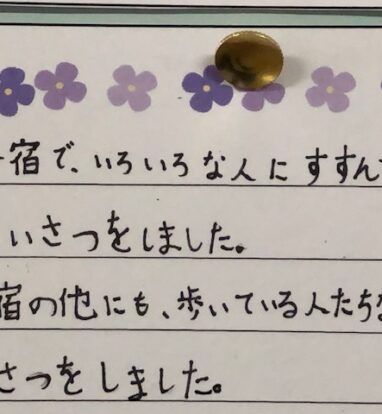 宿で、いろいろな人にすすんで
いさつをしました。
宿の他にも、歩いている人たちな
さつをしました。